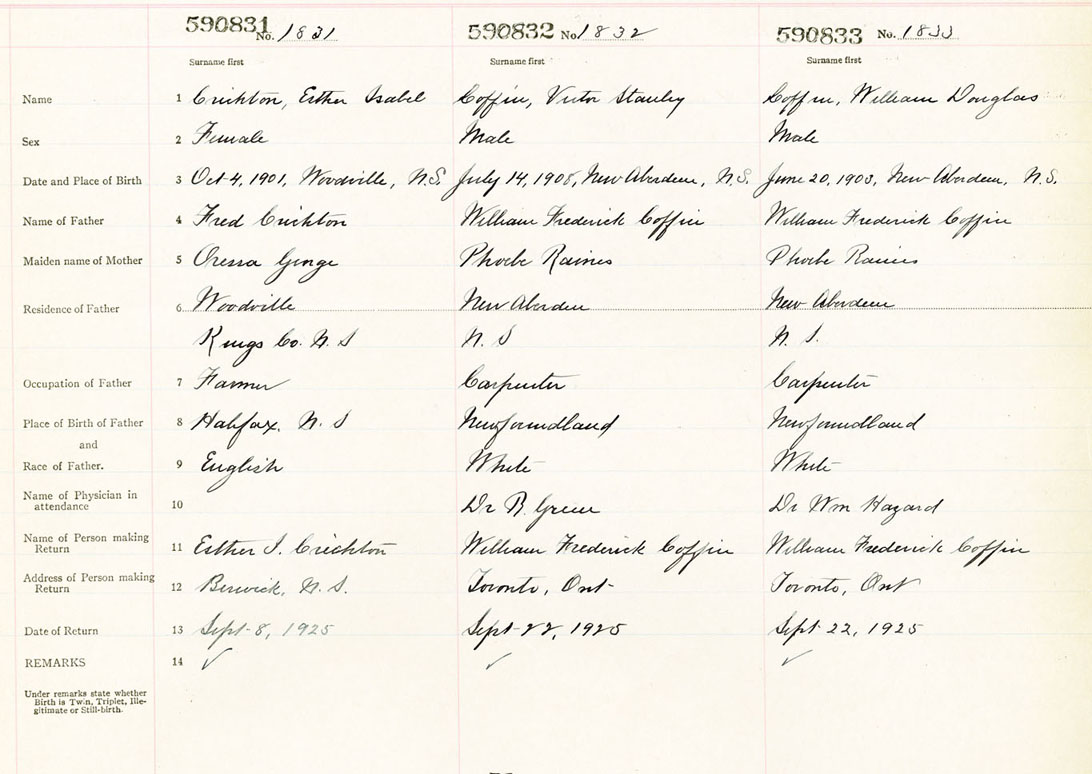 590831 No. 1831 590832 No 1832 590833 No. 1833
Surname first Surname first Surname first
Name 1 Crichton, Esther Isabel Coffin, Victor Stanley Coffin, William Douglas
Sex 2 Female Male Male
Date and Place of Birth 3 Oct 4, 1901, Woodville, N.S. July 14, 1908, New Aberdeen, N.S. June 20, 1903, New Aberdeen, N.S.
Name of Father 4 Fred Crichton William Frederick Coffin William Frederick Coffin
Maiden name of Mother 5 Oressa George Phoebe Raines Phoebe Raines
Residence of Father 6 Woodville New Aberdeen New Aberdeen
Kings Co. N. S N. S N. S.
Occupation of Father 7 Farmer Carpenter Carpenter
Place of Birth of Father 8 Halifax. N. S Newfoundland Newfoundland
and
Race of Father. 9 English White White
Name of Physician in
attendance 10 Dr R. Green Dr Wm Hazard
Name of Person making
Return 11 Esther I. Crichton William Frederick Coffin William Frederick Coffin
Address of Person making
Return 12 Berwick, N. S. Toronto, Ont Toronto, Ont
Date of Return 13 Sept 8, 1925 Sept 22, 1925 Sept 22, 1925
REMARKS 14 ✓ ✓ ✓
Under remarks state whether
Birth is Twin, Triplet, Ille-
gitimate or Still-birth.